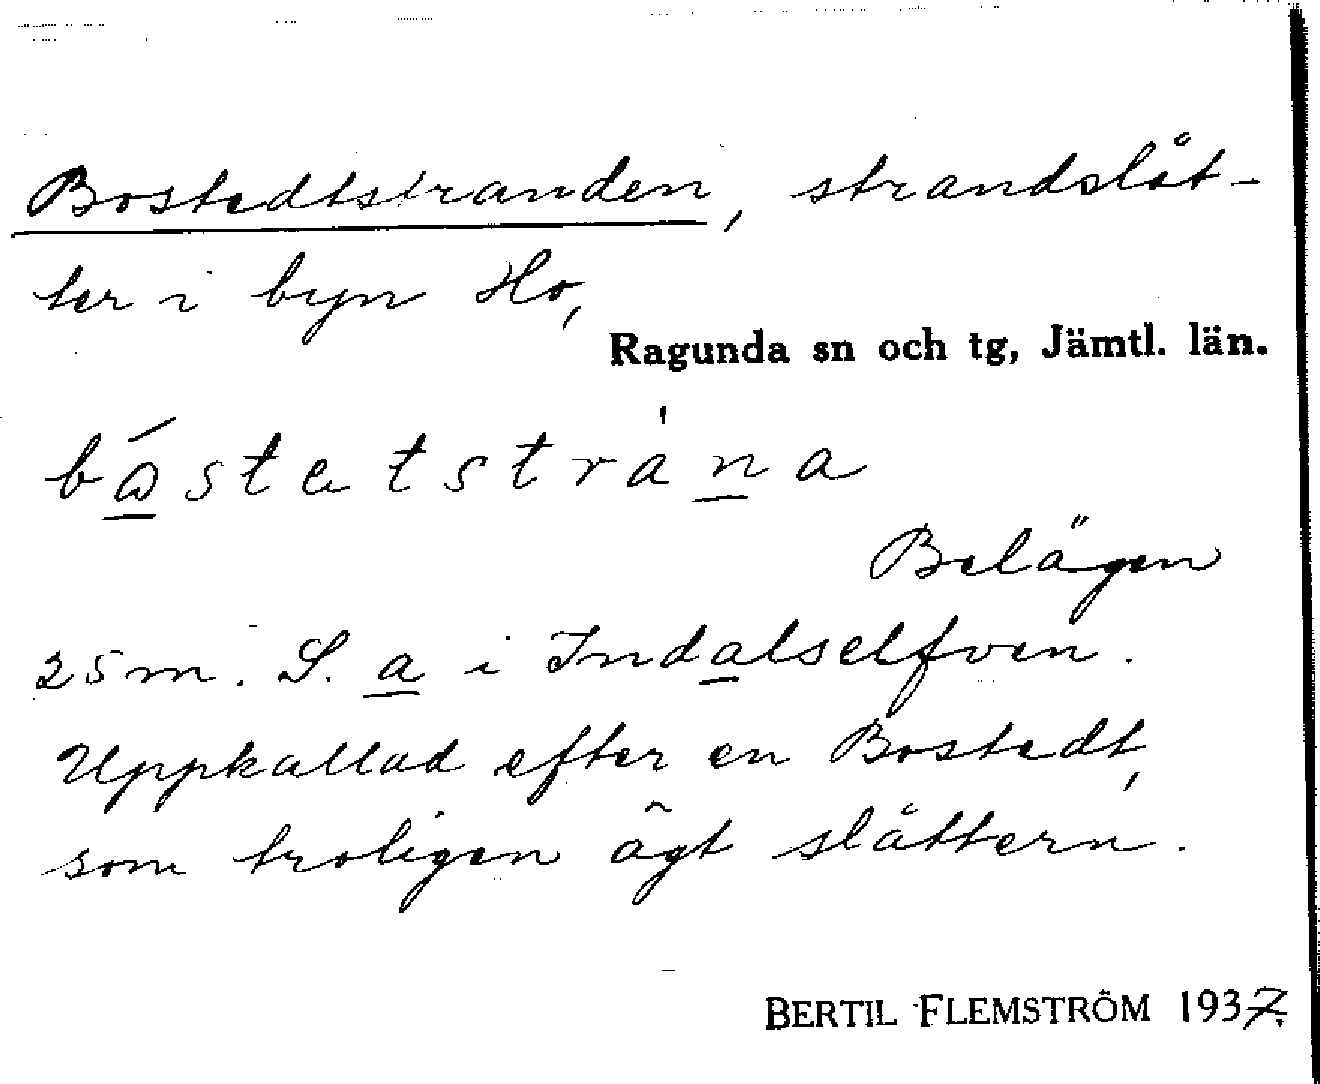 Bostedtstranden, strandslåt-
ter i byn Ho,
Ragunda sn och tg, Jämtl. län.
Belägen
25 m. S. a i Indalselfven.
Uppkallad efter en Bostedt,
som troligen ägt slåttern.
BERTIL FLEMSTRÖM 1937.